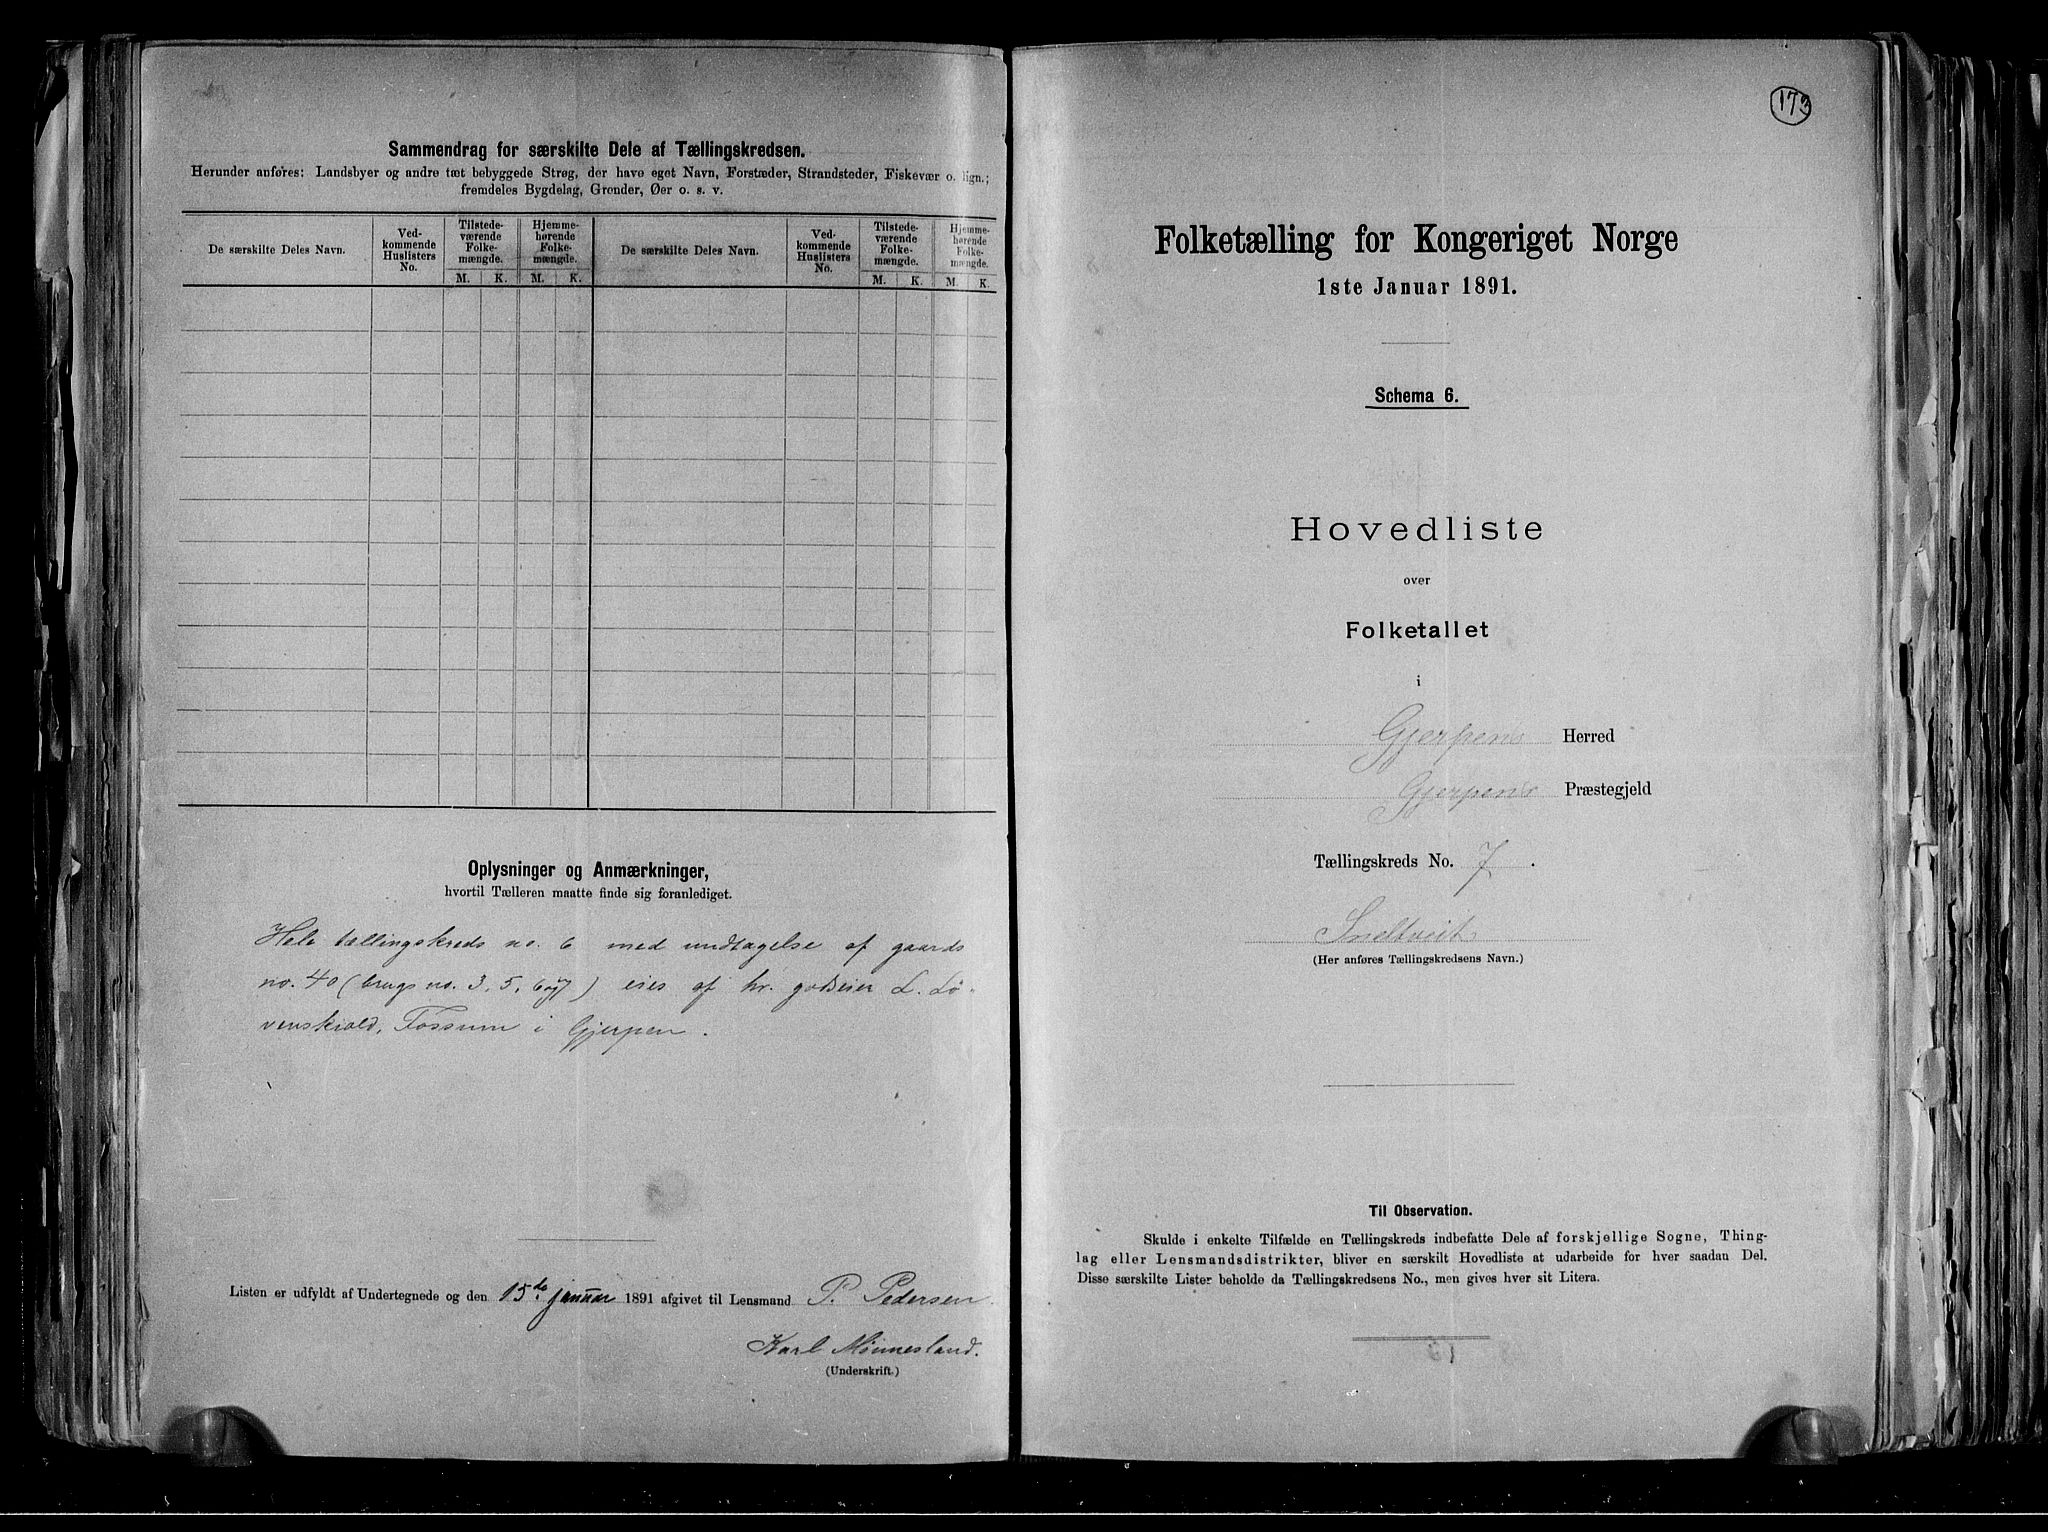 Sammendrag for særskilte Dele af Tællingskredsen.
Herunder anføres: Landsbyer og andre tæt bebyggede Strøg, der have eget Navn, Forstæder, Strandsteder, Fiskevær o. lign.;
fremdeles Bygdelag, Grender, Øer o. s. v.
De særskilte Deles Navn.
Ved-
kommende
Huslisters
No.
Tilstede-
værende
Folke-
mængde.
Hjemme-
hørende
Folke-
mængde.
De særskilte Deles Navn.
Ved-
kommende
Huslisters
No.
Tilstede-
værende
Folke-
mængde.
Hjemme-
hørende
Folke-
mængde.
M. K. M. K. M. K. M. K.
Oplysninger og Anmærkninger,
hvortil Tælleren maatte finde sig foranlediget.
Hele tællingskreds no. 6 med undtagelse af gaards
no. 40 (brugs no. 3, 5, 6 og 7) eies af hr. godseier L. Lø-
venskiold, Fossum i Gjerpen.
Listen er udfyldt af Undertegnede og den 15de januar 1891 afgivet til Lensmand P. Pedersen
Karl Mønnesland.
(Underskrift.)
173
Folketælling for Kongeriget Norge
1ste Januar 1891.
Schema 6.
Hovedliste
over
Folketallet
i
Gjerpens Herred
Gjerpens Præstegjeld
Tællingskreds No. 7.
Sneltveit
(Her anføres Tællingskredsens Navn.)
Til Observation.
Skulde i enkelte Tilfælde en Tællingskreds indbefatte Dele af forskjellige Sogne, Thing-
lag eller Lensmandsdistrikter, bliver en særskilt Hovedliste at udarbeide for hver saadan Del.
Disse særskilte Lister beholde da Tællingskredsens No., men gives hver sit Litera.